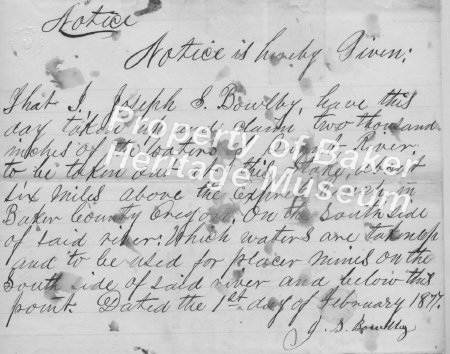 Notice
Notice is hereby Given:
That I, Joseph S. Bowlby, have this
day taken up and claim two thousand
inches of the waters of River
to be taken out this
six miles above the Express in
Baker County Oregon, on the South side
of said river: Which waters are taken up
and to be used for placer mines on the
South side of said river and below this
point. Dated the 1st day of February 1877.
J. S. Bowlby
Property of Baker
Heritage Museum